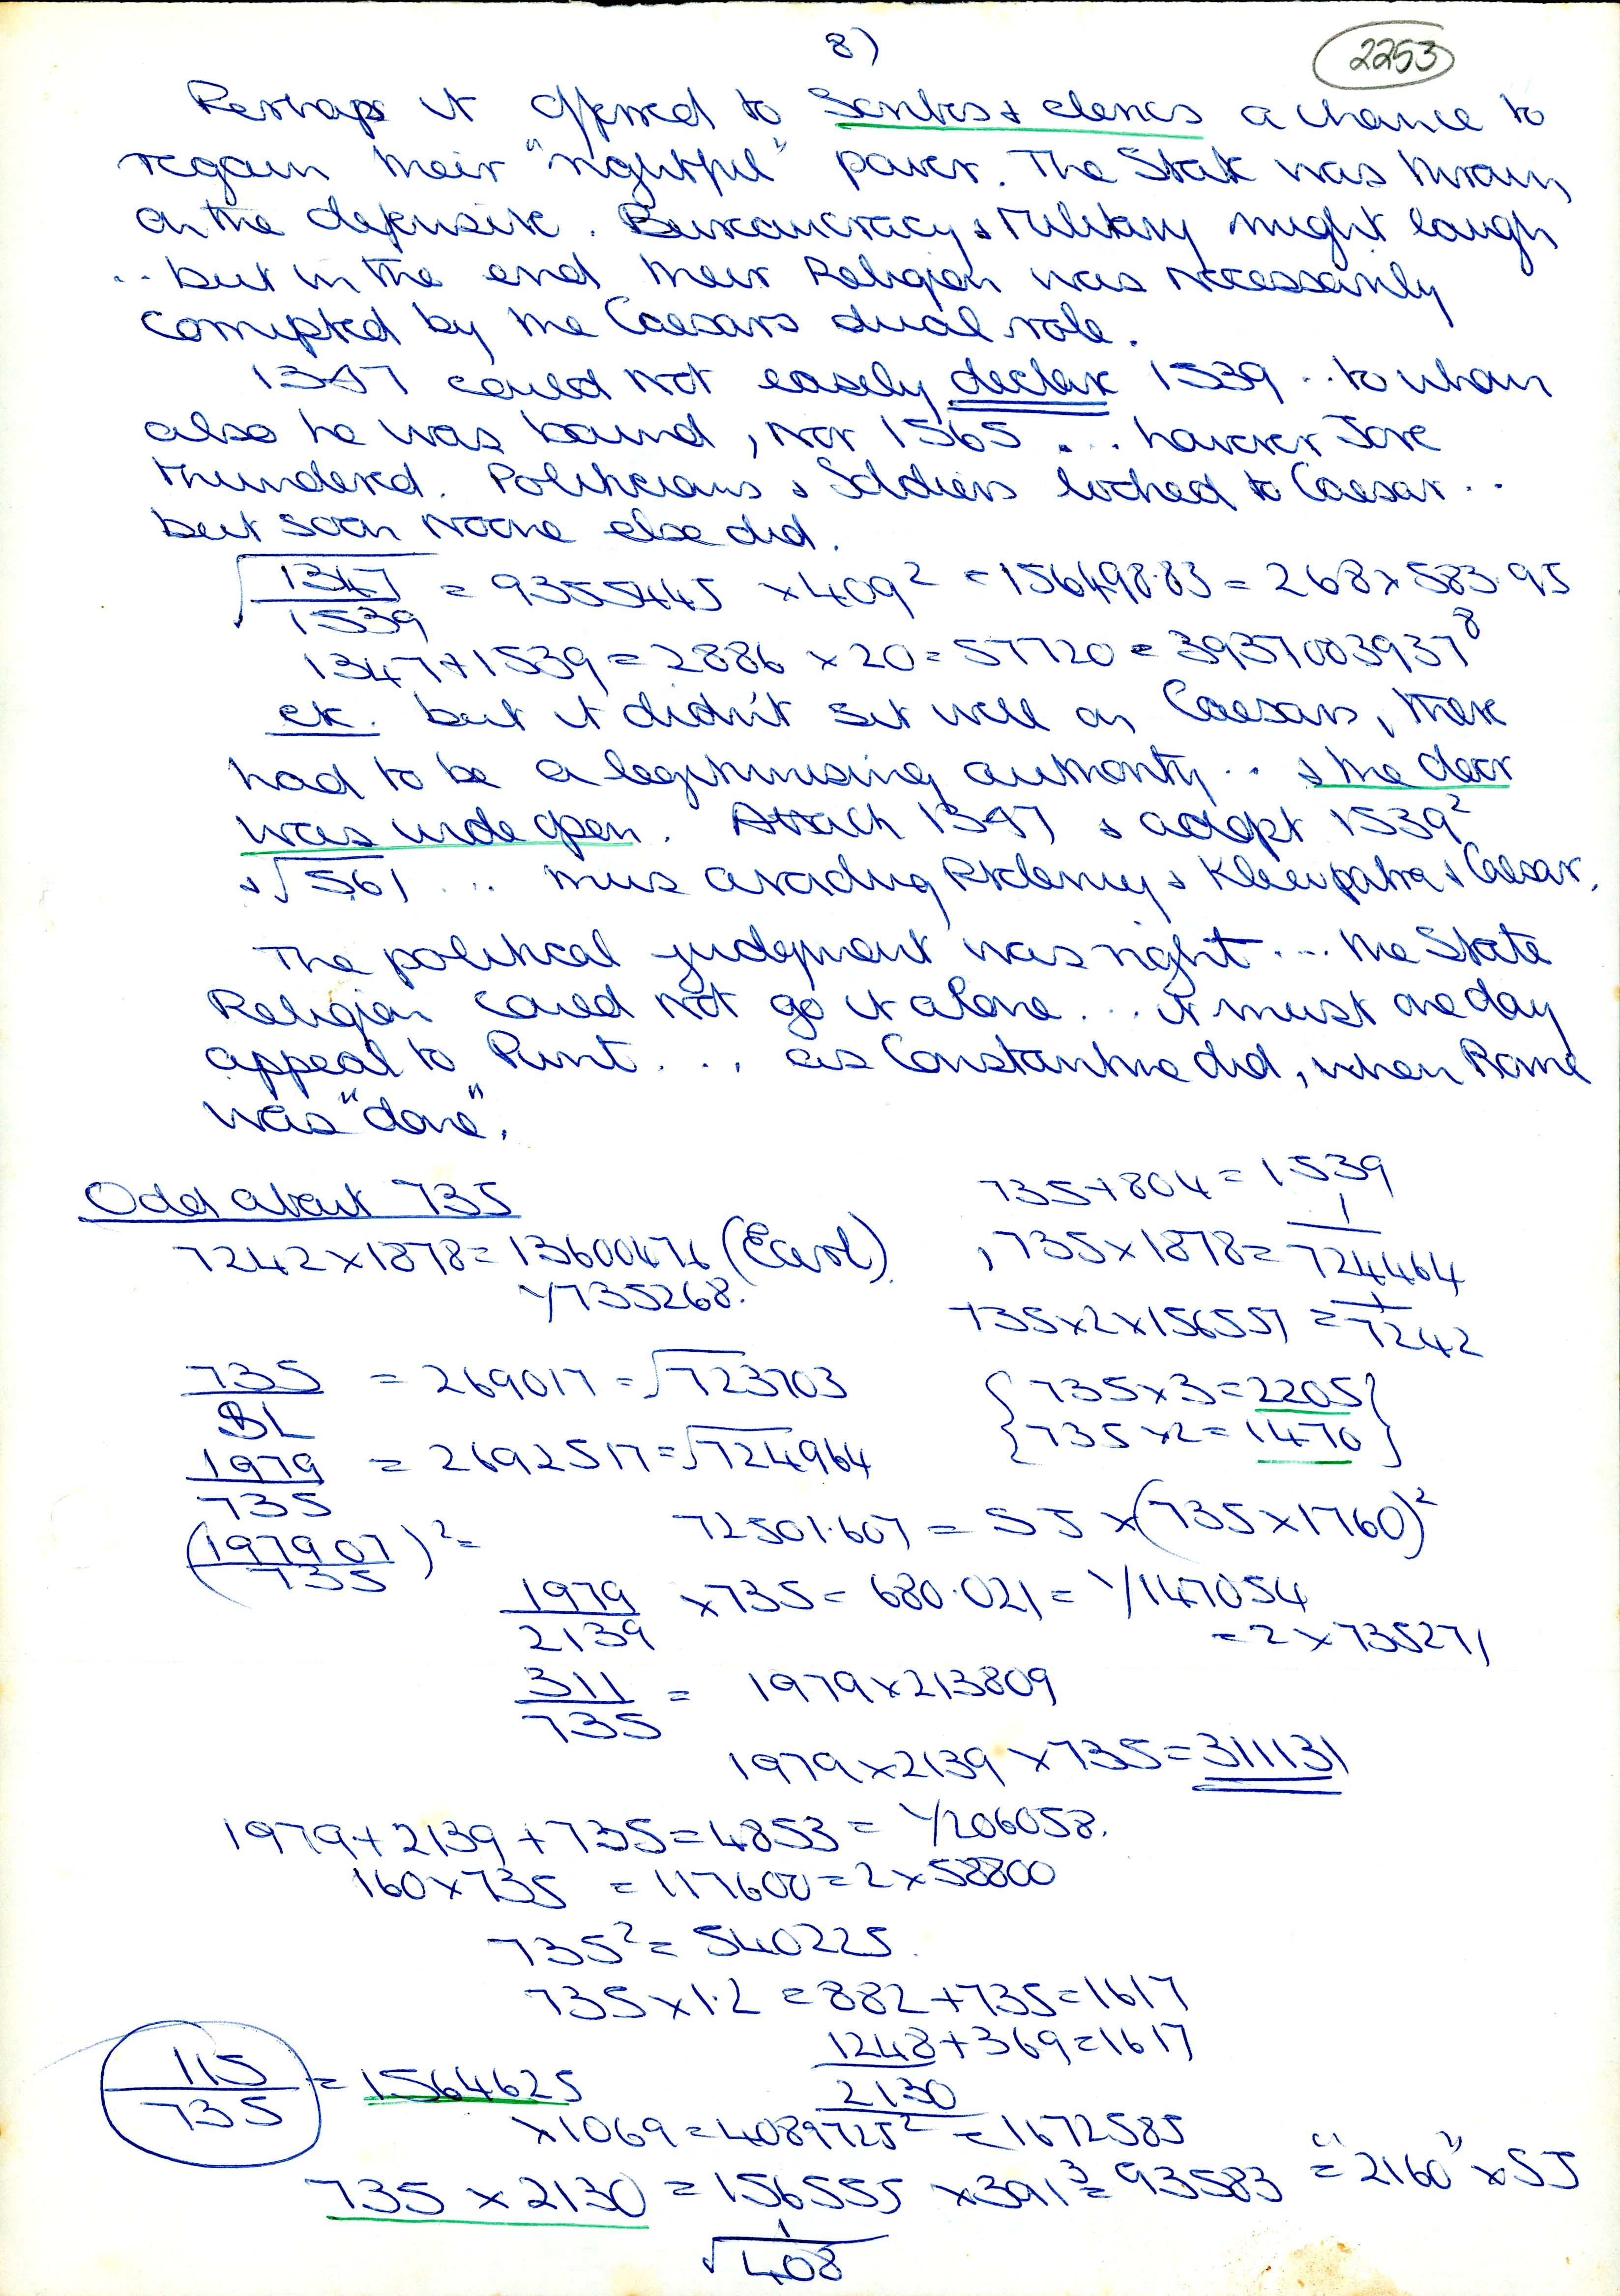 8)
2253
Perhaps it offered to Scribes & clerics a chance to
regain their "rightful" power. The State was thrown
on the defensive. Bureaucracy & Military might laugh
.. but in the end their Religion was necessarily
corrupted by the Caesars dual role.
1347 could not easily declare 1539 .. to whom
also he was bound, nor 1565 ... however Jove
thundered. Politicians & Soldiers looked to Caesar ..
but soon noone else did.
√1347/1539 = 9355445 × 409² = 156498.83 = 268 × 583.95
1347+1539 = 2886 × 20 = 57720 = 3937003937⁸
etc. but it didn't sit well on Caesars, there
had to be a legitimising authority .. & the door
was wide open. Attach 1347 & adopt 1539²
& √561 ... thus avoiding Ptolemy & Kleopatra & Caesar.
The political judgment was right ... the State
Religion could not go it alone ... it must one day
appeal to Punt ... as Constantine did, when Rome
was "done".
Odd about 735
735+804 = 1539
7242×1878 = 13600476 (Earth)
1/735268.
, 735×1878 = 1/724464
735×2×156551 = 1/7242
735/BL = 269017 = √723703
{735×3 = 2205}
{735×2 = 1470}
1979/735 = 2692517 = √724964
(197907/735)² = 72501.607 = 55 × (735×1760)²
1979/2139 ×735 = 680.021 = 1/147054
= 2×735271
311/735 = 1979×213809
1979×2139×735 = 311131
1979+2139+735 = 4853 = 1/206058.
160×735 = 117600 = 2×58800
735² = 540225.
735×1.2 = 882+735 = 1617
1248+369 = 1617
2130
115/735 = 1564625
×1069 = 4089725² = 1672585
735 × 2130 = 156555 × 391³ = 93583 = "2160" × 55
1/√408